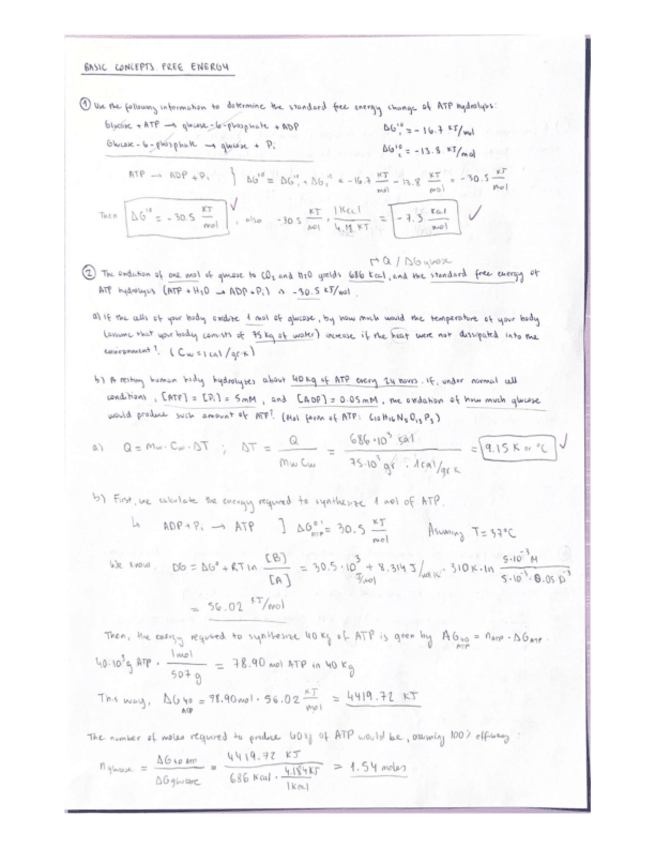 BASIC CONCEPTS FREE ENERGY
① Use the following information to determine the standard free energy change of ATP hydrolysis:
Glucose + ATP → glucose-6-phosphate + ADP ΔG'°₁ = -16.7 KJ/mol
Glucose-6-phosphate → glucose + Pi ΔG'°₂ = -13.8 KJ/mol
ATP → ADP + Pi } ΔG'° = ΔG'°₁ + ΔG'°₂ = -16.7 KJ/mol - 13.8 KJ/mol = -30.5 KJ/mol
Then ΔG'° = -30.5 KJ/mol ✓, also -30.5 KJ/mol · 1Kcal/4.18 KJ = -7.3 Kcal/mol ✓
Q / ΔGglucose
② The oxidation of one mol of glucose to CO₂ and H₂O yields 686 Kcal, and the standard free energy of
ATP hydrolysis (ATP + H₂O → ADP + Pi) is -30.5 KJ/mol.
a) If the cells of your body oxidize 1 mol of glucose, by how much would the temperature of your body
(assume that your body consists of 75 kg of water) increase if the heat were not dissipated into the
environment? (Cw = 1 cal/gr·K)
b) A resting human body hydrolyses about 40 kg of ATP every 24 hours. If, under normal cell
conditions, [ATP] = [Pi] = 5mM, and [ADP] = 0.05mM, the oxidation of how much glucose
would produce such amount of ATP? (Mol form of ATP: C₁₀H₁₆N₅O₁₃P₃)
a) Q = mw·Cw·ΔT ; ΔT = Q / mw Cw = 686·10³ cal / 75·10³ gr · 1cal/gr K = 9.15 K or °C ✓
b) First, we calculate the energy required to synthesize 1 mol of ATP.
↳ ADP + Pi → ATP } ΔG°'ATP = 30.5 KJ/mol Assuming T = 37°C
We know, DG = ΔG° + RT ln [B]/[A] = 30.5·10³ J/mol + 8.314 J/mol K · 310K · ln 5·10⁻³ M / 5·10⁻³ · 0.05·10⁻³
= 56.02 KJ/mol
Then, the energy required to synthesize 40 Kg of ATP is given by ΔG40 ATP = nATP · ΔGATP.
40·10³g ATP · 1mol/507 g = 78.90 mol ATP in 40 Kg
This way, ΔG40 ATP = 78.90mol · 56.02 KJ/mol = 4419.72 KJ
The number of moles required to produce 40 kg of ATP would be, assuming 100% efficiency:
nglucose = ΔG40 ATP / ΔGglucose = 4419.72 KJ / 686 Kcal · 4.184KJ/1Kcal = 1.54 moles